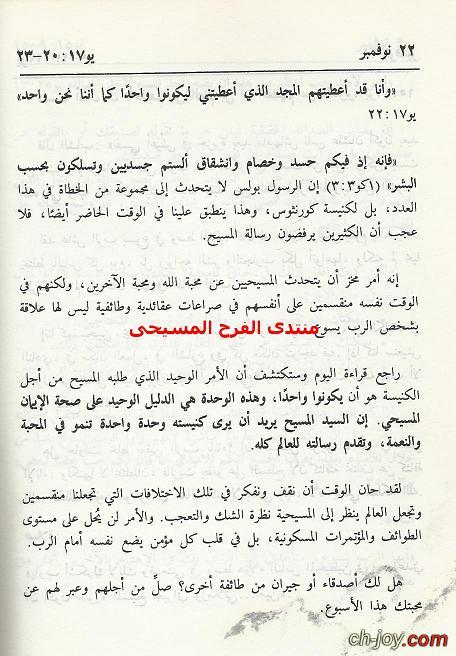 ٢٢ نوفمبر
يو١٧: ٢٠-٢٣
«وأنا قد أعطيتهم المجد الذي أعطيتني ليكونوا واحدًا كما أننا نحن واحد»
يو١٧: ٢٢
«فإنه إذ فيكم حسد وخصام وانشقاق ألستم جسديين وتسلكون بحسب
البشر» (١كو٣: ٣) إن الرسول بولس لا يتحدث إلى مجموعة من الخطاة في هذا
العدد، بل لكنيسة كورنثوس، وهذا ينطبق علينا في الوقت الحاضر أيضًا، فلا
عجب أن الكثيرين يرفضون رسالة المسيح.
إنه أمر مخزٍ أن يتحدث المسيحيين عن محبة الله ومحبة الآخرين، ولكنهم في
الوقت نفسه منقسمين على أنفسهم في صراعات عقائدية وطائفية ليس لها علاقة
بشخص الرب يسوع
منتدى الفرح المسيحى
راجع قراءة اليوم وستكتشف أن الأمر الوحيد الذي طلبه المسيح من أجل
الكنيسة هو أن يكونوا واحدًا، وهذه الوحدة هي الدليل الوحيد على صحة الإيمان
المسيحي. إن السيد المسيح يريد أن يرى كنيسته وحدة واحدة تنمو في المحبة
والنعمة، وتقدم رسالته للعالم كله.
لقد حان الوقت أن نقف ونفكر في تلك الاختلافات التي تجعلنا منقسمين
وتجعل العالم ينظر إلى المسيحية نظرة الشك والتعجب. والأمر لن يُحل على مستوى
الطوائف والمؤتمرات المسكونية، بل في قلب كل مؤمن يضع نفسه أمام الرب.
هل لك أصدقاء أو جيران من طائفة أخرى؟ صلِّ من أجلهم وعبر لهم عن
محبتك هذا الأسبوع.
ch-joy.com